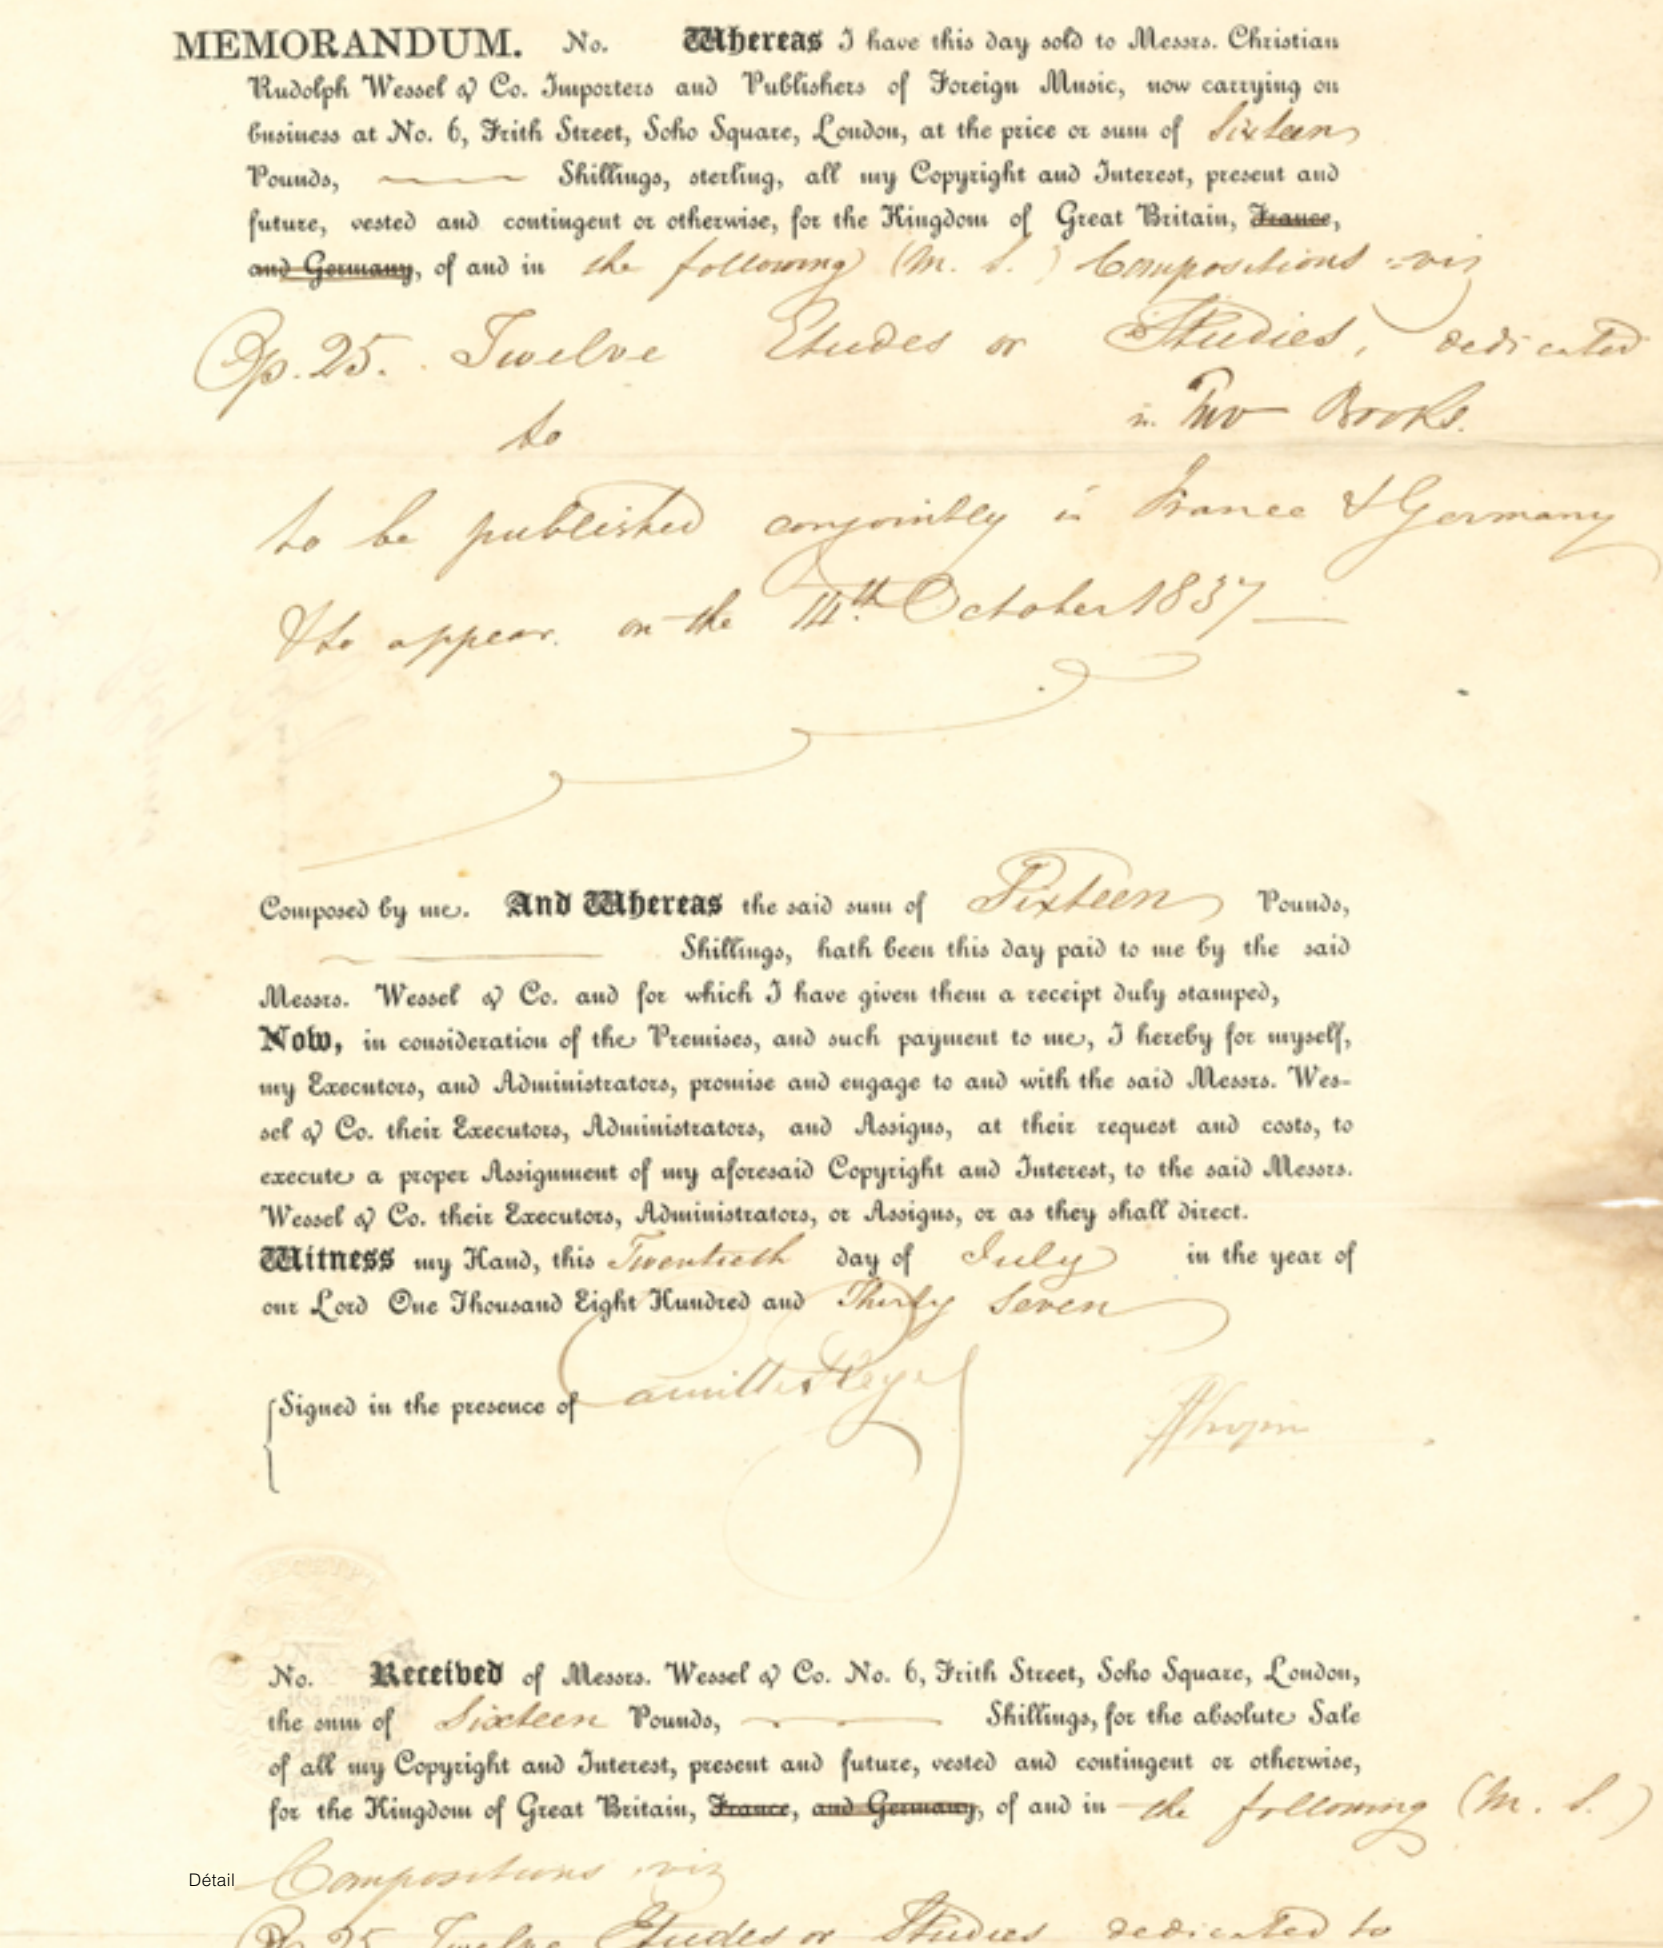 MEMORANDUM. No. Whereas I have this day sold to Messrs. Christian
Rudolph Wessel & Co. Importers and Publishers of Foreign Music, now carrying on
business at No. 6, Frith Street, Soho Square, London, at the price or sum of Sixteen
Pounds, ——— Shillings, sterling, all my Copyright and Interest, present and
future, vested and contingent or otherwise, for the Kingdom of Great Britain, France,
and Germany, of and in the following (M. S.) Compositions viz
Op. 25. Twelve Etudes or Studies, dedicated
to in Two Books.
to be published conjointly in France & Germany
& to appear. on the 14th October 1837 —
Composed by me. And Whereas the said sum of Sixteen Pounds,
——— Shillings, hath been this day paid to me by the said
Messrs. Wessel & Co. and for which I have given them a receipt duly stamped,
Now, in consideration of the Premises, and such payment to me, I hereby for myself,
my Executors, and Administrators, promise and engage to and with the said Messrs. Wes-
sel & Co. their Executors, Administrators, and Assigns, at their request and costs, to
execute a proper Assignment of my aforesaid Copyright and Interest, to the said Messrs.
Wessel & Co. their Executors, Administrators, or Assigns, or as they shall direct.
Witness my Hand, this Twentieth day of July in the year of
our Lord One Thousand Eight Hundred and Thirty Seven
Signed in the presence of Camille Pleyel FChopin
No. Received of Messrs. Wessel & Co. No. 6, Frith Street, Soho Square, London,
the sum of Sixteen Pounds, ——— Shillings, for the absolute Sale
of all my Copyright and Interest, present and future, vested and contingent or otherwise,
for the Kingdom of Great Britain, France, and Germany, of and in the following (M. S.)
Détail Compositions viz
Op. 25 Twelve Etudes or Studies dedicated to